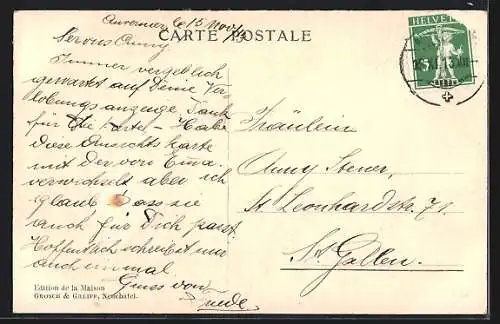 Auvernier, le 15 Nov. 13
CARTE POSTALE
HELVETIA
5
Servus Anny
Immer vergeblich
gewartet auf Deine Ver-
lobungsanzeige Dank
für die Kartel - Habe
diese Ansichtskarte
mit der von Emma
verwechselt aber ich
glaub dass sie
auch für Dich passt.
Hoffentlich schreibst mir
auch einmal.
Gruss von
Friedel
Fräulein
Anny Steuer,
St. Leonhardstr. 71
St. Gallen.
Edition de la Maison
GROSCH & GREIFF, Neuchâtel.